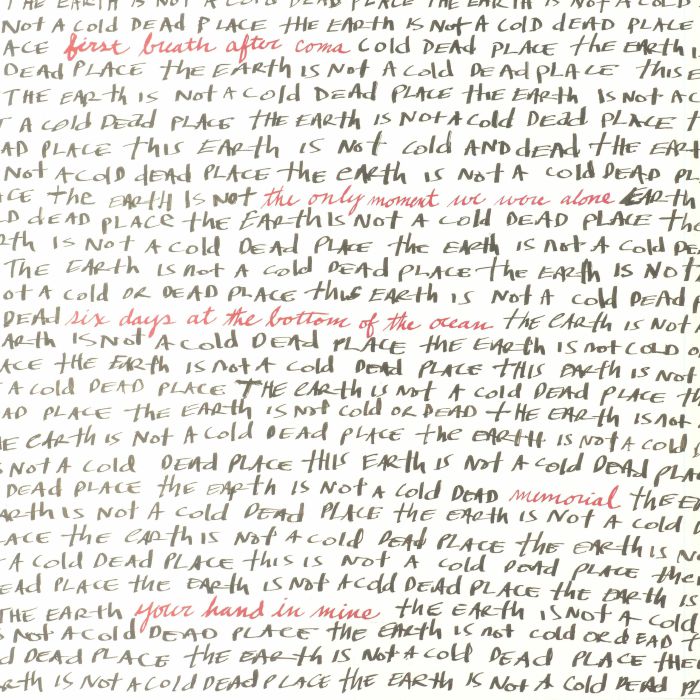 THE EARTH IS NOT A COLD DEAD PLACE THE EARTH IS NOT A COLD
NOT A COLD DEAD PLACE THE EARTH IS NOT A COLD DEAD PLACE
ACE first breath after coma COLD DEAD PLACE THE EARTH I
DEAD PLACE THE EARTH IS NOT A COLD DEAD PLACE THIS E
THE EARTH IS NOT A COLD DEAD PLACE THE EARTH IS NOT A C
T A COLD DEAD PLACE THE EARTH IS NOT A COLD DEAD PLACE T
AD PLACE THIS EARTH IS NOT COLD AND DEAD THE EART
NOT A COLD DEAD PLACE THE EARTH IS NOT A COLD DEAD PL
ACE THE EARTH IS NOT the only moment we were alone EARTH
LD DEAD PLACE THE EARTH IS NOT A COLD DEAD PLACE THE
RTH IS NOT A COLD DEAD PLACE THE EARTH IS NOT A COLD DE
THE EARTH IS NOT A COLD DEAD PLACE THE EARTH IS NOT
OT A COLD OR DEAD PLACE THIS EARTH IS NOT A COLD DEAD
DEAD six days at the bottom of the ocean THE EARTH IS NOT
ARTH IS NOT A COLD DEAD PLACE THE EARTH IS NOT COLD O
ACE THE EARTH IS NOT A COLD DEAD PLACE THIS EARTH IS NOT
A COLD DEAD PLACE THE EARTH IS NOT A COLD DEAD PLACE THE
AD PLACE THE EARTH IS NOT COLD OR DEAD THE EARTH IS NOT
HE EARTH IS NOT A COLD DEAD PLACE THE EARTH IS NOT A COLD
NOT A COLD DEAD PLACE THIS EARTH IS NOT A COLD DEAD PLA
DEAD PLACE THE EARTH IS NOT A COLD DEAD memorial THE EA
ARTH IS NOT A COLD DEAD PLACE THE EARTH IS NOT A COLD
ACE THE EARTH IS NOT A COLD DEAD PLACE THE EARTH IS N
A COLD DEAD PLACE THIS IS NOT A COLD DEAD PLACE THE
EAD PLACE THE EARTH IS NOT A COLD DEAD PLACE THE EARTH IS
THE EARTH your hand in mine THE EARTH IS NOT A COLD
S NOT A COLD DEAD PLACE THE EARTH IS NOT COLD OR DEAD T
D DEAD PLACE THE EARTH IS NOT A COLD DEAD PLACE THE
RTH IS NOT A COLD DEAD PLACE THE EARTH IS NOT A COLD DEAD PL